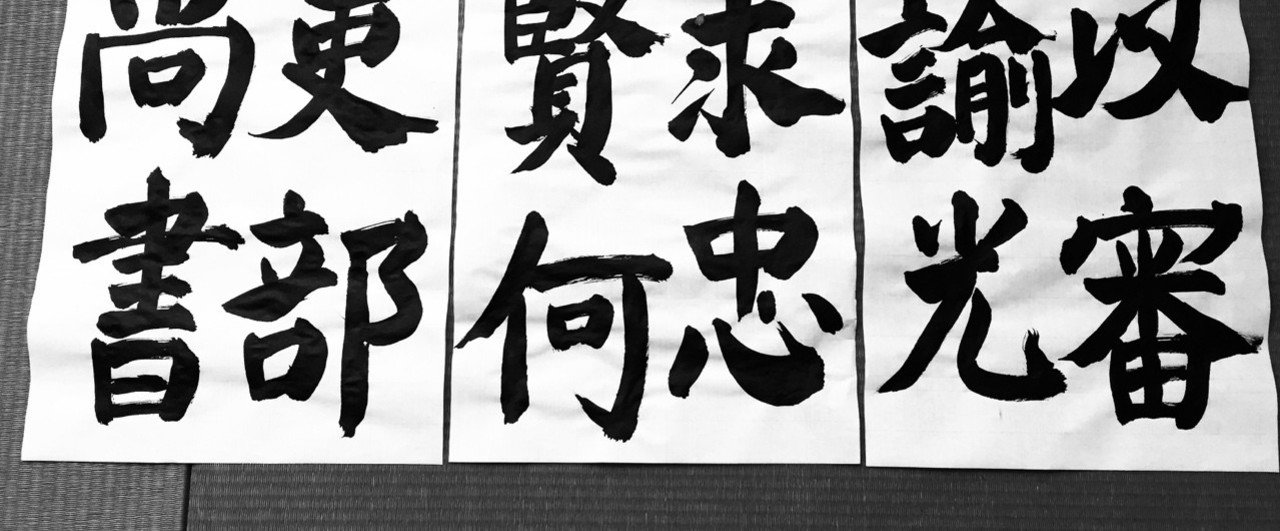 以審
諭光
求忠
賢何
吏部
尚書